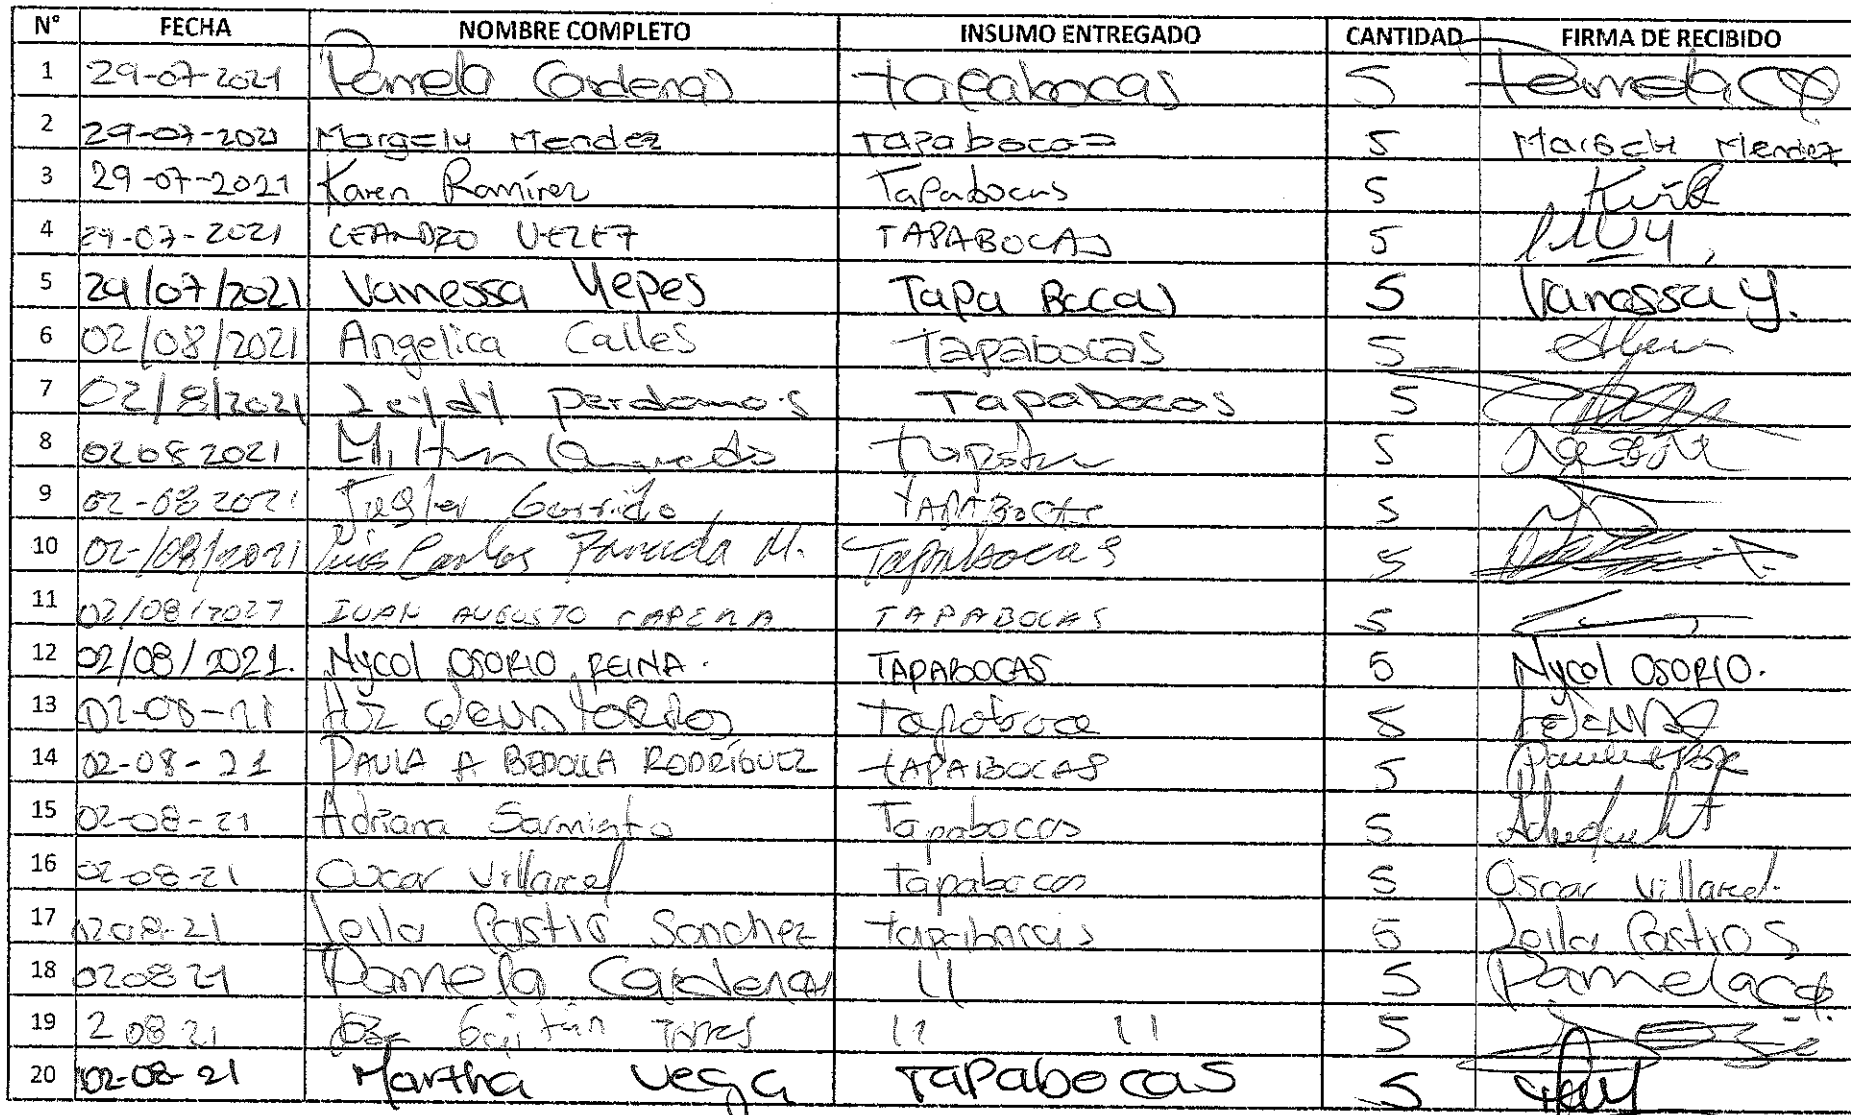 N° FECHA NOMBRE COMPLETO INSUMO ENTREGADO CANTIDAD FIRMA DE RECIBIDO
1 29-07-2021 Pamela Cardenas tapabocas 5 Pamela
2 29-07-2021 Margely Mendez TAPabocas 5 Margely Mendez
3 29-07-2021 Karen Ramírez Tapabocas 5
4 29-07-2021 LEANDRO VELEZ TAPABOCAS 5
5 29/07/2021 Vanessa Yepes Tapa Bocas 5 Vanessa Y.
6 02/08/2021 Angelica Calles Tapabocas 5
7 02/8/2021 Leydy perdomo.s Tapabocas 5
8 02082021 Milton 5
9 02-08 2021 Garrido 5
10 02-/08/2021 Luis Carlos M. Tapabocas 5
11 02/08/2021 IUAN AUGUSTO CAPERA TAPABOCAS 5
12 02/08/2021. Nycol OSORIO REINA. TAPABOCAS 5 Nycol OSORIO.
13 02-08-21 5
14 02-08-21 PAULA A BEDOLLA RODRÍGUEZ TAPABOCAS 5
15 02-08-21 Adriana Sarmiento Tapabocas 5
16 02-08-21 Oscar Villareal Tapabocas 5 Oscar Villareal.
17 0208-21 Leila Castro Sanchez tapabocas 5 Leila Castro S
18 020821 Pamela Cardenas 11 5 Pamela
19 2 08 21 Gaitán TORRES 11 11 5
20 02-08-21 Martha Vega TaPabocas 5